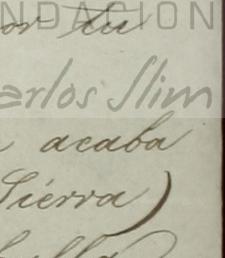 NDACIÓN
or tu
arlos Slim
acaba
Sierra)